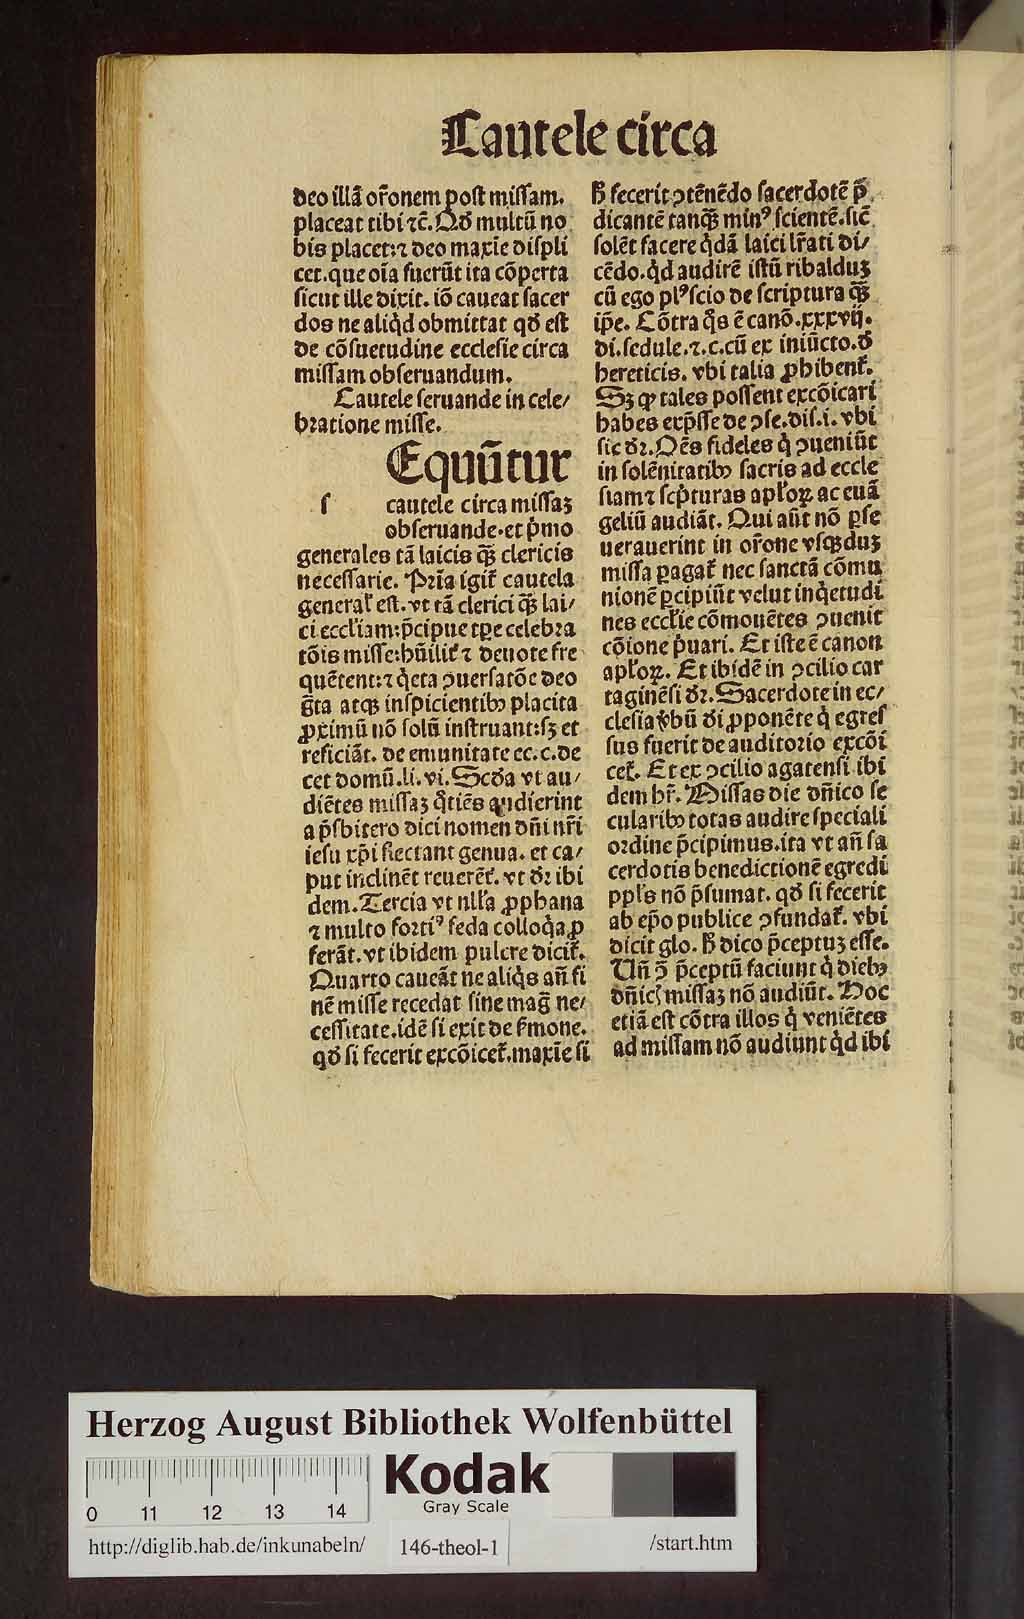 Cautele circa
deo illā or̄onem post missam.
placeat tibi ⁊c̄. Qd́ multū no
bis placet:⁊ deo maxīe displi
cet.que oīa fuerūt ita cōperta
sicut ille dixit. iō caueat sacer
dos ne aliq̇d obmittat qd́ est
de cōsuetudine ecclesie circa
missam obseruandum.
Cautele seruande in cele/
bratione misse.
Equūtur
s cautele circa missaꝫ
obseruande.et ṗmo
generales tā laicis qꝫ̄ clericis
necessarie. Prīa igit̄ cautela
general̄ est. vt tā clerici qꝫ̄ lai/
ci eccl̄iam:p̄cipue tꝑe celebra
tōis misse:hūilit̄ ⁊ deuote fre
quētent:⁊ q̇eta ↄuersatōe deo
ḡta atqꝫ inspicientibꝰ placita
ꝓximū nō solū instruant:sꝫ et
reficiāt. de emunitate ec. c. de
cet domū.li. vi. Scd́a vt au/
diētes missaꝫ q̊tiēs audierint
a p̄sbitero dici nomen dn̄i nr̄i
iesu xp̄i flectant genua. et ca/
put inclinēt reuerēt̄. vt d́ꝛ ibi
dem. Tercia vt nll̄a ꝓphana
⁊ multo fortiꝰ feda colloq̇a ꝓ
ferāt. vt ibidem pulcre dicit̄.
Quarto caueāt ne aliq̇s an̄ fi
nē misse recedat sine maḡ ne/
cessitate. idē si exit de s̄mone.
qd́ si fecerit excōicet̄.maxīe si
ħ fecerit ↄtēnēdo sacerdotē p̄
dicantē tanqꝫ̄ minꝰ scientē.sic̄
solēt facere q̇dā laici lr̄ati di/
cēdo.q̇d audirē istū ribalduꝫ
cū ego plꝰ scio de scriptura qꝫ̄
ip̄e. Cōtra q̊s ē canō.xxxvij.
di.sedule.⁊.c.cū ex iniūcto.d́
hereticis. vbi talia ꝓhibent̄.
Sꝫ ꝙ tales possent excōicari
habes exp̄sse de ↄse.dis.i. vbi
sic d́ꝛ. Oēs fideles q̇ ↄueniūt
in solēnitatibꝰ sacris ad eccle
siam ⁊ scp̄turas apl̄oꝝ ac euā
geliū audiāt. Qui aūt nō ꝑse
uerauerint in or̄one vsqꝫduꝫ
missa ꝑagat̄ nec sanctā cōmu
nionē ꝑcipiūt velut inq̇etudi
nes eccl̄ie cōmouētes ↄuenit
cōione ṗuari. Et iste ē canon
apl̄oꝝ. Et ibidē in ↄcilio car
taginēsi d́ꝛ. Sacerdote in ec/
clesia v̄bū di ꝓponēte q̇ egres
sus fuerit de auditorio excōi
cet̄. Et ex ↄcilio agatensi ibi
dem hr̄. Missas die dn̄ico se
cularibꝰ totas audire speciali
ordine p̄cipimus. ita vt an̄ sa
cerdotis benedictionē egredi
ppl̄s nō p̄sumat. qd́ si fecerit
ab ep̄o publice ↄfundat̄. vbi
dicit glo. ħ dico p̄ceptuꝫ esse.
Un̄ ↄ̄ p̄ceptū faciunt q̇ diebꝰ
dn̄icꝭ missaꝫ nō audiūt. Hoc
etiā est cōtra illos q̇ veniētes
ad missam nō audiunt q̇d ibi
Herzog August Bibliothek Wolfenbüttel
0 11 12 13 14
Kodak
Gray Scale
http://diglib.hab.de/inkunabeln/
146-theol-1
/start.htm